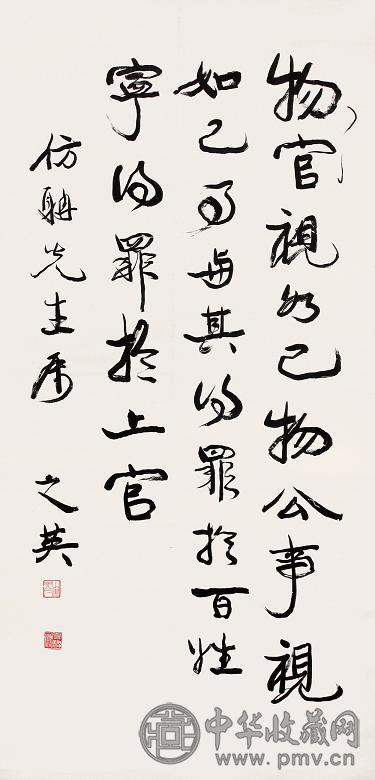 物官視如己物公事視
如己事與其得罪於百姓
寧得罪於上官
仿聃先生屬 文英
中华收藏网
www.pmv.cn